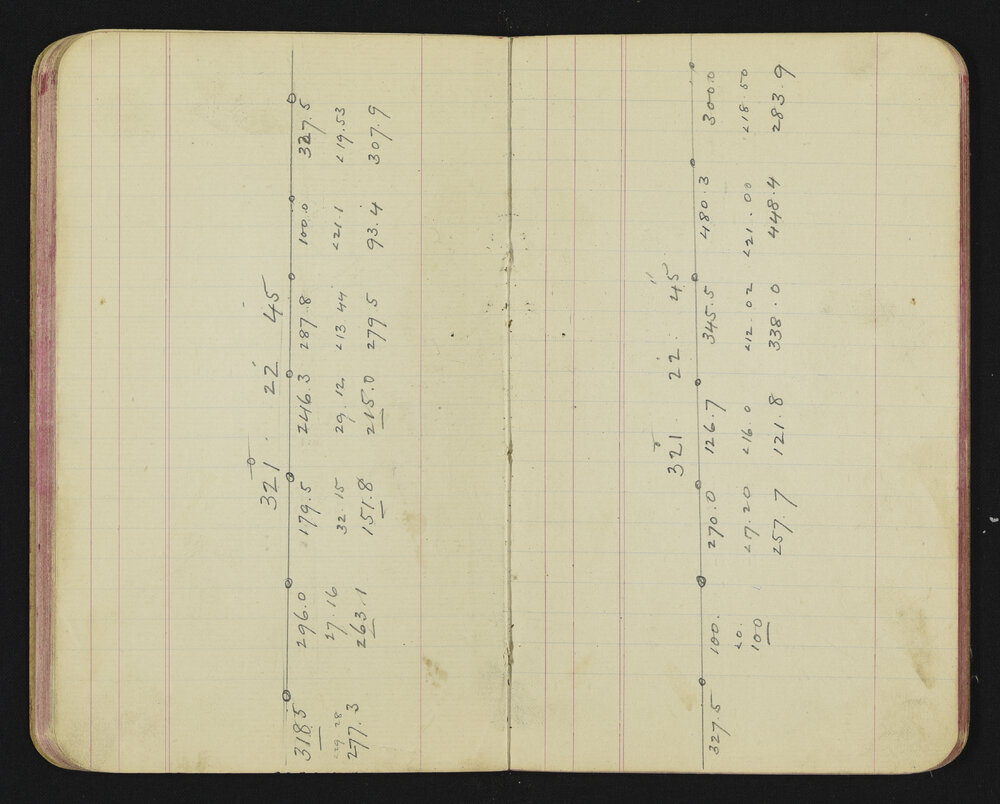 321° 22' 45"
318.5 296.0 179.5 246.3 287.8 100.0 327.5
∠29.28 27.16 32.15 29.12 ∠13 44 ∠21.1 ∠19.53
277.3 263.1 151.8 215.0 279.5 93.4 307.9
321° 22' 45"
327.5 100. 270.0 126.7 345.5 480.3 300.0
∠0. ∠7.20 ∠16.0 ∠12.02 ∠21.00 ∠18.50
100 257.7 121.8 338.0 448.4 283.9